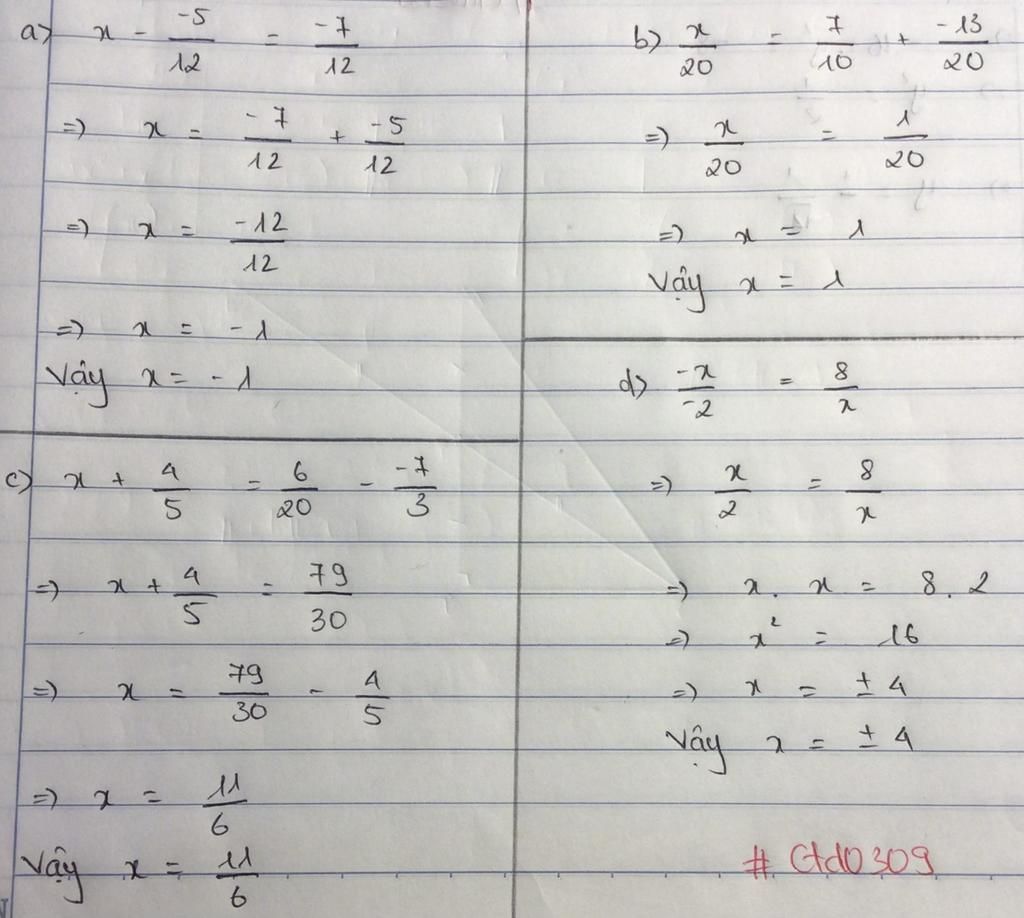 a) x - -5/12 = -7/12
=) x = -7/12 + -5/12
=) x = -12/12
=) x = -1
Vậy x = -1
b) x/20 = 7/10 + -13/20
=) x/20 = 1/20
=) x = 1
Vậy x = 1
c) x + 4/5 = 6/20 - -7/3
=) x + 4/5 = 79/30
=) x = 79/30 - 4/5
=) x = 11/6
Vậy x = 11/6
d) -x/-2 = 8/x
=) x/2 = 8/x
=) x . x = 8 . 2
=) x² = 16
=) x = ±4
Vậy x = ±4
# Gtd0309